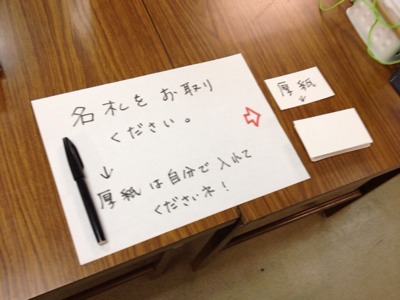 名札をお取り
ください。
⇨
↓
厚紙は自分で入れて
くださいネ!
厚紙
↓